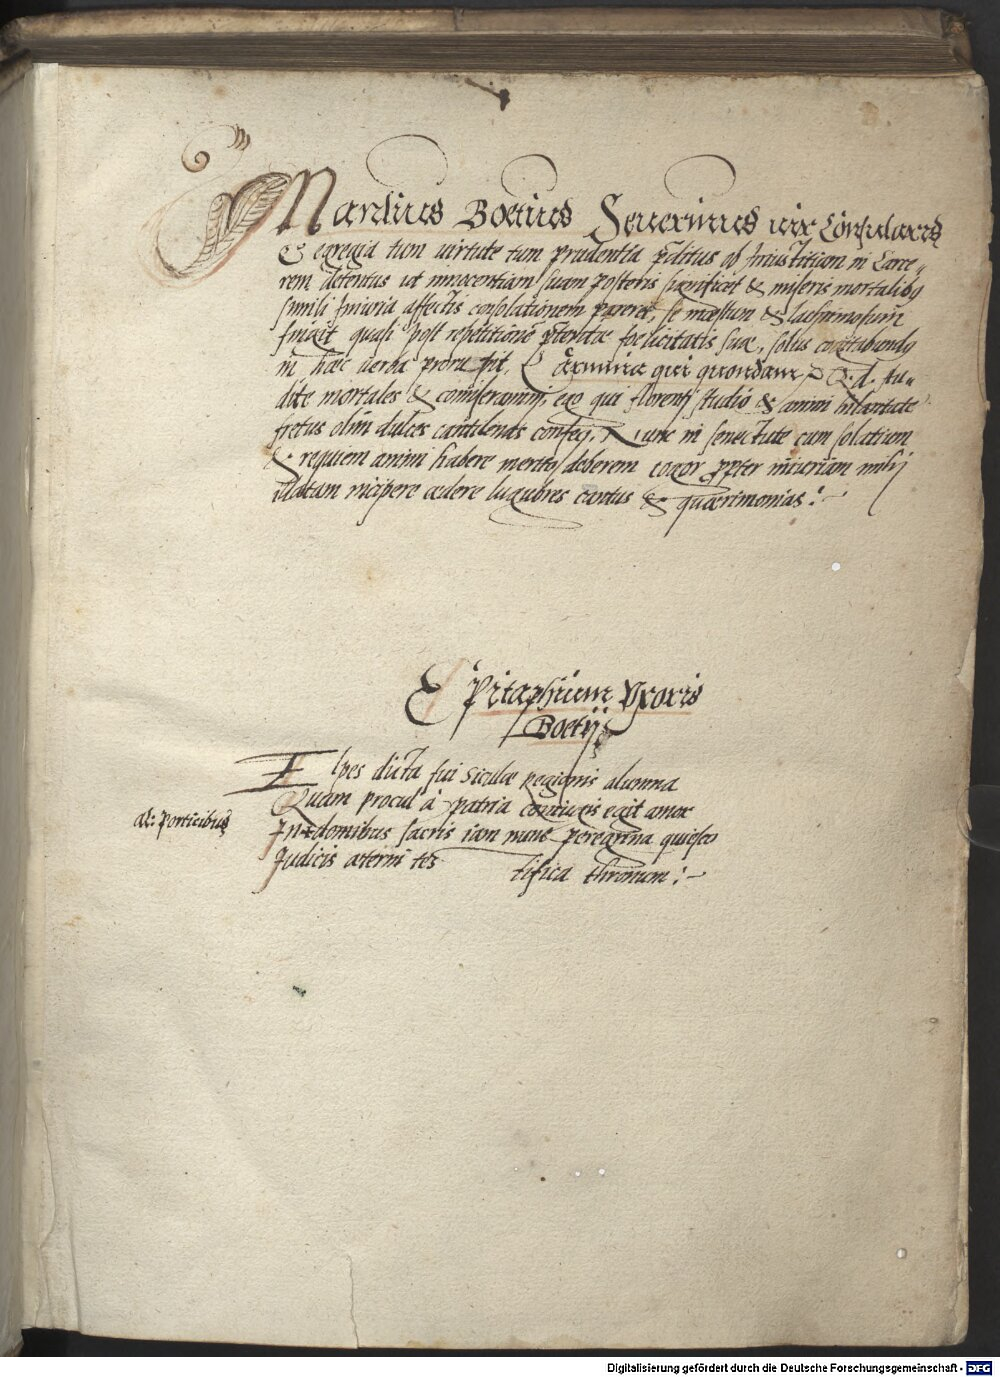 Manlius Boetius Seuerinus uir Consularis
& egregia tum uirtute tum prudentia p̄ditus ob Iniustitiam in Carce-
rem detentus ut innocentiam suam posteris significet & miseris mortalibꝯ
simili Iniuria affectis consolationem pareret, se mæstum & lachrimosum
fingit quasi post repetitionē p̄teritæ foelicitatis suæ, solus cogitabundꝯ
in hæc uerba prorupit. Carmina qui quondam Q. d. Au-
dite mortales & ego qui florenti studio & animi hilaritate
fretus olim dulces cantilenas confeci, Nunc in senectute cum solatium
& requiem animi habere merito deberem cogor ꝓpter iniuriam mihi
illatam incipere ædere lugubres cantus & quærimonias:~
Epitaphium Vxoris
Boetij
Elpes dicta fui Siculæ Regionis alumna
Quam procul à patria coniugis egit amor
al: Porticibus
In domibus sacris iam nunc peregrina quiesco
Judicis æterni tes tifica thronum:~
Digitalisierung gefördert durch die Deutsche Forschungsgemeinschaft - DFG